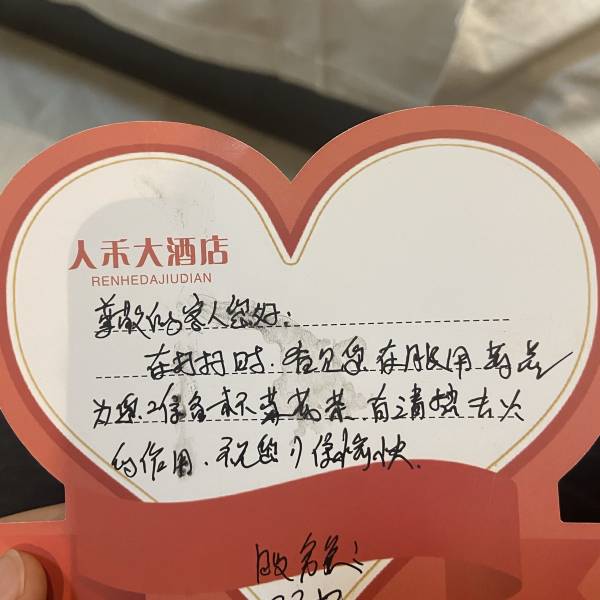 人禾大酒店
RENHEDAJIUDIAN
尊敬的客人您好:
在打扫时.看见您在服用药品
为您准备一杯菊花茶 有清热去火
的作用.祝您心情愉快.
服务员: